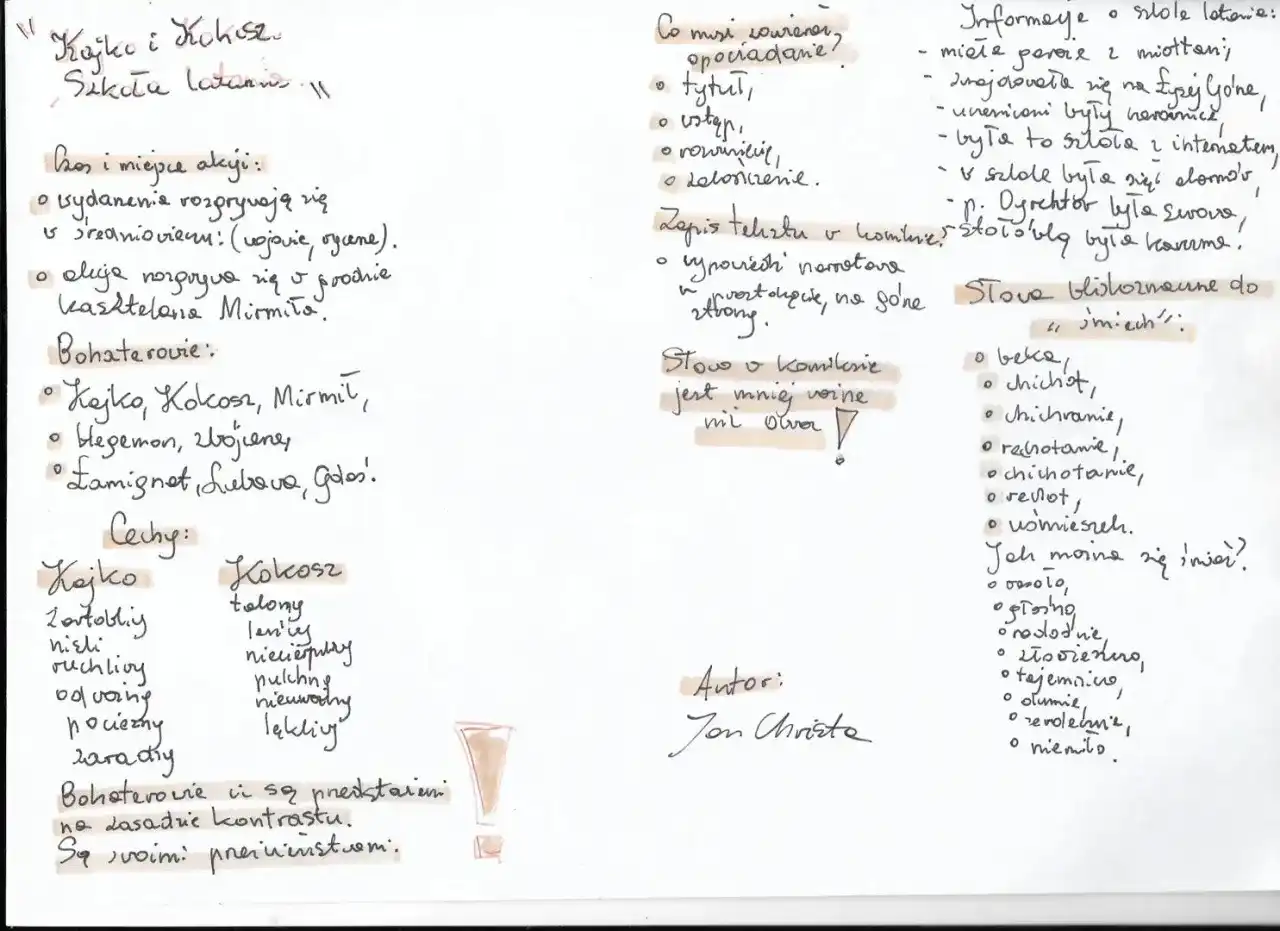 "Kajko i Kokosz.
Szkoła latania."
Czas i miejsce akcji:
wydarzenia rozgrywają się
w średniowieczu: (wojowie, rycerze).
akcja rozgrywa się w grodzie
kasztelana Mirmiła.
Bohaterowie:
Kajko, Kokosz, Mirmił,
Hegemon, zbójcerze,
Łamignat, Lubawa, Gdaś.
Cechy:
Kajko
żartobliwy
niski
ruchliwy
odważny
pocieszny
zaradny
Kokosz
łakomy
leniwy
niecierpliwy
pulchny
nieuważny
lękliwy
Bohaterowie ci są przedstawieni
na zasadzie kontrastu.
Są swoimi przeciwieństwami.
!
Co musi zawierać
opowiadanie?
tytuł,
wstęp,
rozwinięcie,
zakończenie.
Zapis tekstu w komiksie:
wypowiedź narratora
w prostokącie, na górze
strony.
Słowo w komiksie
jest mniej ważne
niż obraz!
Autor:
Jan Christa
Informacje o szkole latania:
- miała garaże z miotłami,
- znajdowała się na Łysej Górze,
- uczennicami były czarownice,
- była to szkoła z internatem,
- w szkole było sześć domów,
- p. Dyrektor była surowa,
- stołówką była karczma.
Słowa bliskoznaczne do
"śmiech":
beka,
chichot,
chichranie,
rechotanie,
chichotanie,
rechot,
uśmieszek.
Jak można się śmiać?
wesoło,
głośno,
radośnie,
złowieszczo,
tajemniczo,
dumnie,
serdecznie,
niemiło.